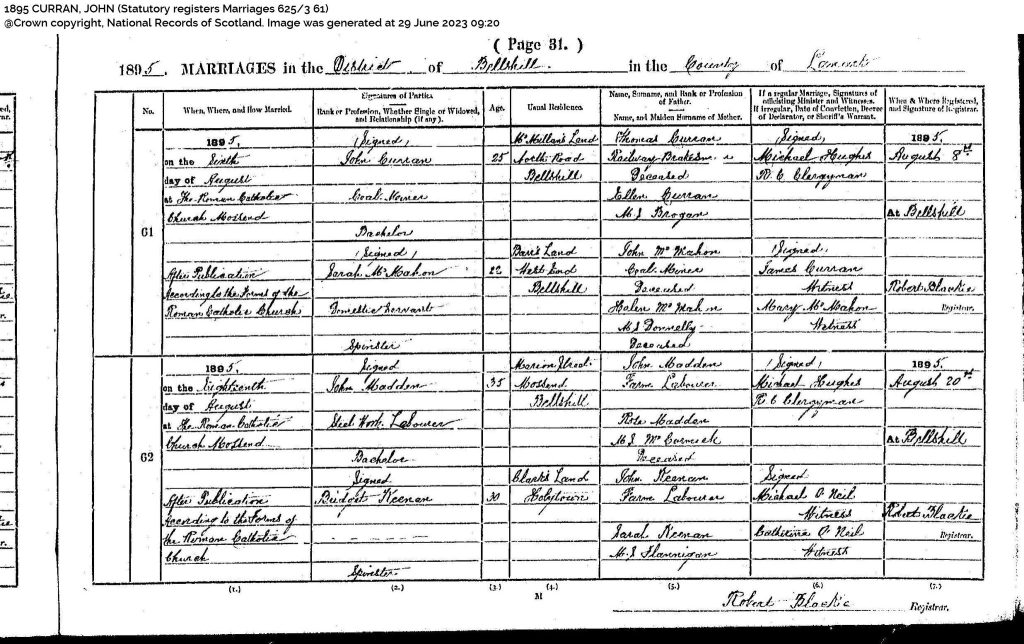 1895 CURRAN, JOHN (Statutory registers Marriages 625/3 61)
@Crown copyright, National Records of Scotland. Image was generated at 29 June 2023 09:20
( Page 31. )
1895. MARRIAGES in the District of Bellshill. in the County of Lanark
No.
When, Where, and How Married.
Signatures of Parties.
Rank or Profession, Whether Single or Widowed, and Relationship (if any).
Age.
Usual Residence.
Name, Surname, and Rank or Profession of Father.
Name, and Maiden Surname of Mother.
If a regular Marriage, Signatures of officiating Minister and Witnesses.
If irregular, Date of Conviction, Decree of Declarator, or Sheriff's Warrant.
When & Where Registered, and Signature of Registrar.
61
1895.
on the Sixth
day of August
at The Roman Catholic
Church Mossend
After Publication
According to the Forms of the
Roman Catholic Church
(Signed)
John Curran
Coal Miner
Bachelor
(Signed)
Sarah McMahon
Domestic Servant
Spinster
25
22
McMullan's Land
North Road
Bellshill
Barr's Land
West End
Bellshill
Thomas Curran
Railway Brakesman
Deceased
Ellen Curran
M.S. Brogan
John McMahon
Coal Miner
Deceased
Helen McMahon
M.S. Donnelly
Deceased
(Signed)
Michael Hughes
R. C. Clergyman
(Signed)
James Curran
Witness
Mary McMahon
Witness
1895.
August 8th
At Bellshill
Robert Blackie
Registrar.
62
1895.
on the Eighteenth
day of August
at The Roman Catholic
Church Mossend
After Publication
According to the Forms of
the Roman Catholic
Church
Signed
John Madden
Steel Work Labourer
Bachelor
Signed
Bridget Keenan
Spinster
35
30
Marion Street
Mossend
Bellshill
Clark's Land
Holytown
John Madden
Farm Labourer
Rose Madden
M.S. McCormick
Deceased
John Keenan
Farm Labourer
Sarah Keenan
M.S. Flannigan
(Signed)
Michael Hughes
R C Clergyman
Signed
Michael O'Neil
Witness
Catherine O'Neil
Witness
1895.
August 20th
At Bellshill
Robert Blackie
Registrar.
(1.) (2.) (3.) (4.) (5.) (6.) (7.)
M
Robert Blackie Registrar.